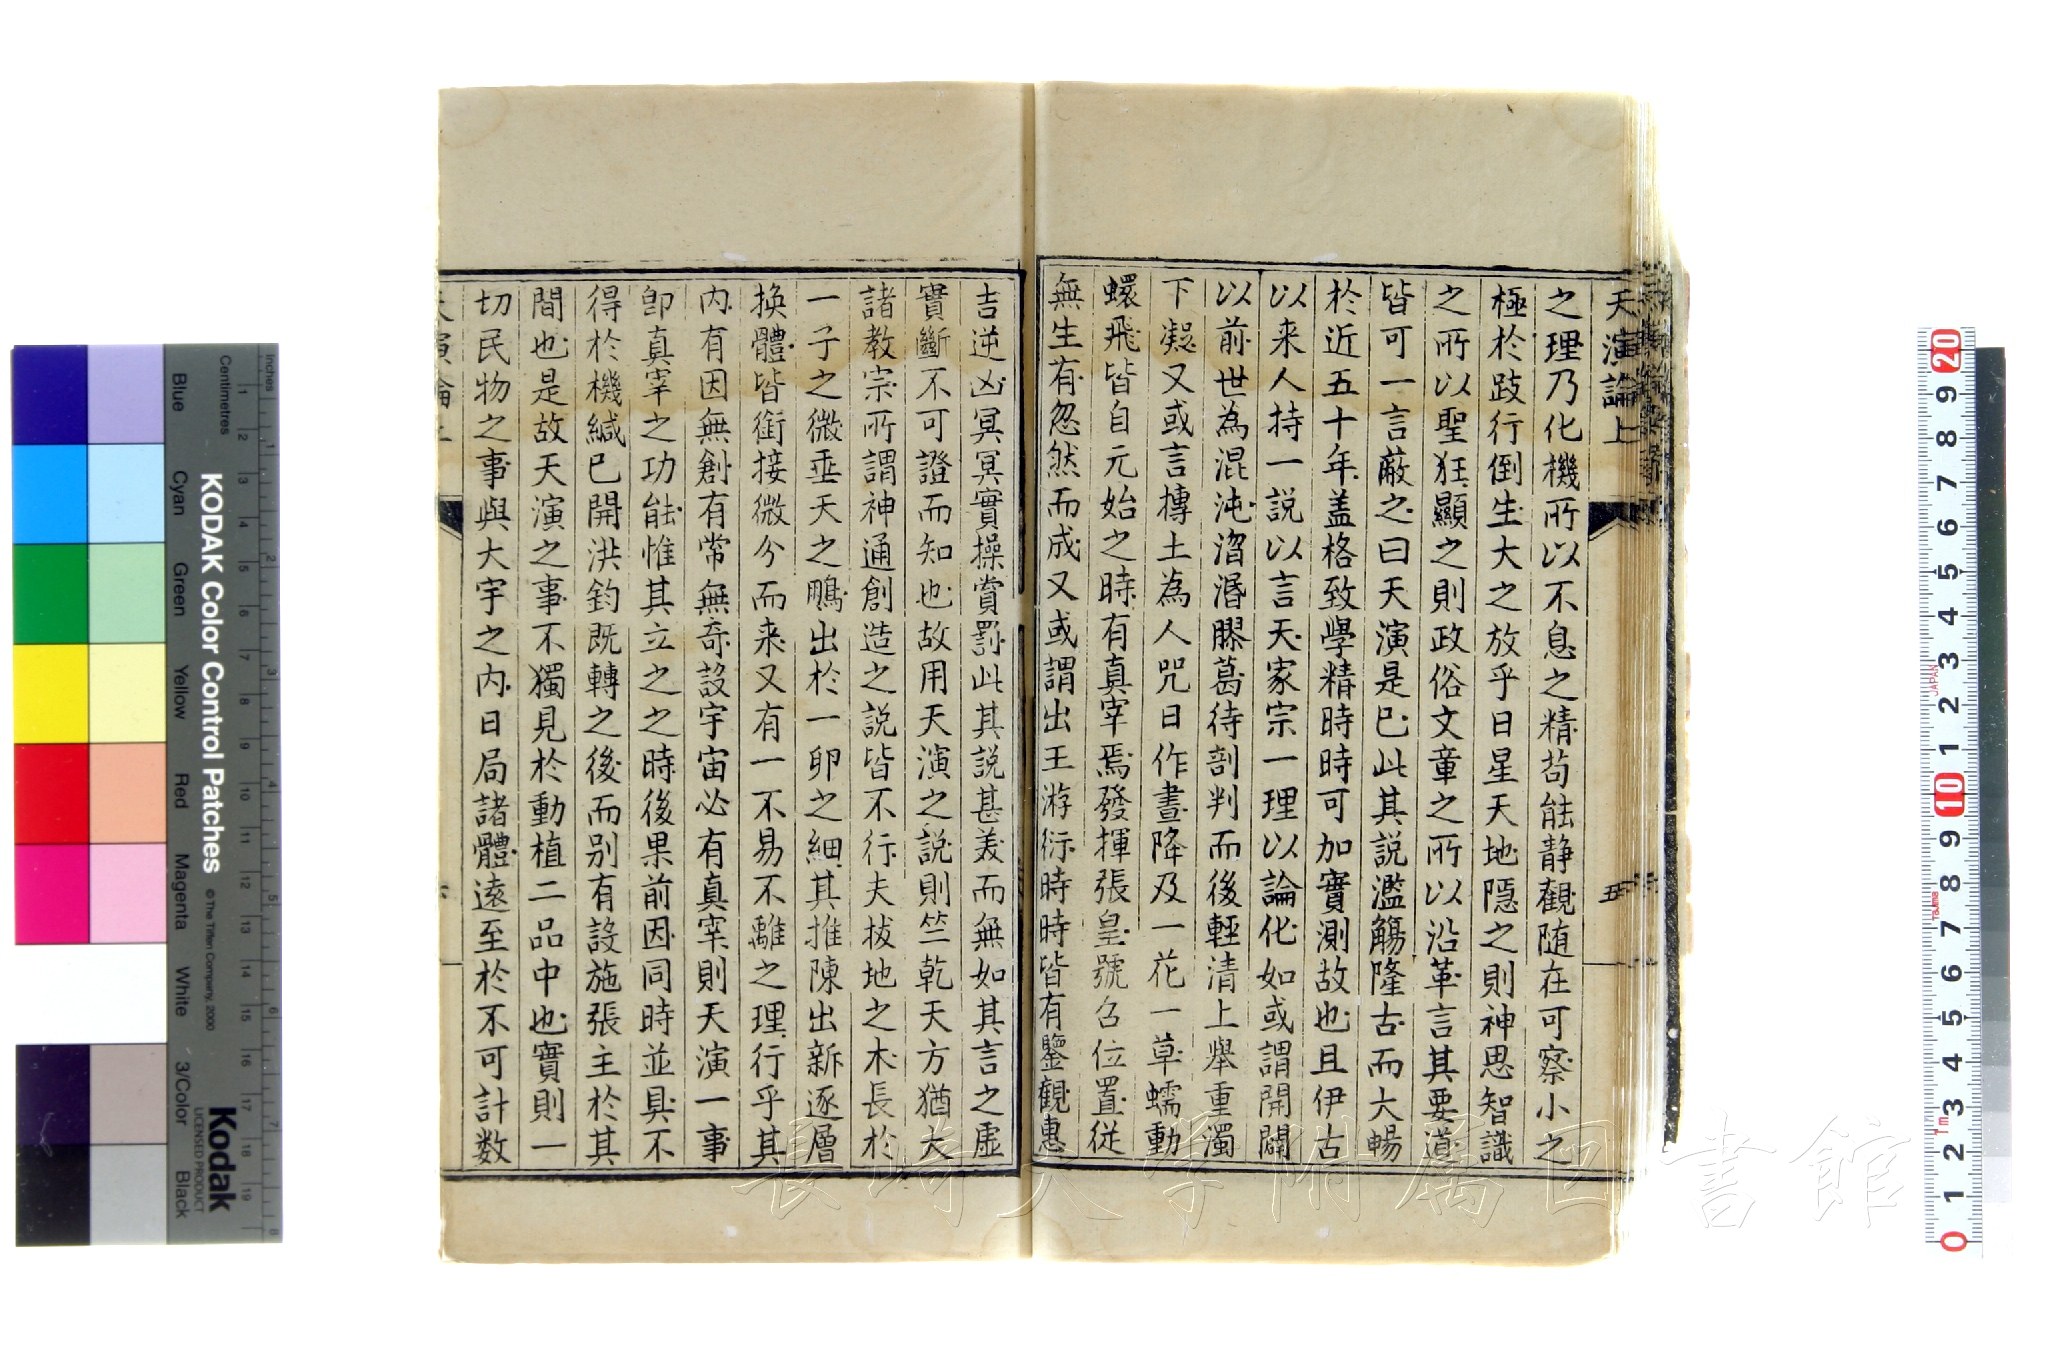 天演論上
五
之理乃化機所以不息之精苟能静觀随在可察小之
極於跂行倒生大之放乎日星天地隱之則神思智識
之所以聖狂顯之則政俗文章之所以沿革言其要道
皆可一言蔽之曰天演是已此其說濫觴隆古而大暢
於近五十年盖格致學精時時可加實測故也且伊古
以来人持一說以言天家宗一理以論化如或謂開闢
以前世為混沌湝湣膠葛待剖判而後輕清上舉重濁
下凝又或言摶土為人咒日作晝降及一花一草蠕動
蠉飛皆自元始之時有真宰焉發揮張皇號召位置從
無生有忽然而成又或謂出王游衍時時皆有鑒觀惠
吉逆凶冥冥實操賞罰此其說甚美而無如其言之虛
實斷不可證而知也故用天演之說則竺乾天方猶太
諸教宗所謂神通創造之說皆不行夫拔地之木長於
一子之微垂天之鵬出於一卵之細其推陳出新逐層
換體皆銜接微分而来又有一不易不離之理行乎其
内有因無創有常無奇設宇宙必有真宰則天演一事
卽真宰之功能惟其立之之時後果前因同時並具不
得於機緘已開洪鈞既轉之後而别有設施張主於其
間也是故天演之事不獨見於動植二品中也實則一
切民物之事與大宇之内日局諸體遠至於不可計数
天演論上
KODAK Color Control Patches
© The Tiffen Company, 2000
Kodak
LICENSED PRODUCT
Inches
Centimetres
1 2 3 4 5 6 7 8
1 2 3 4 5 6 7 8 9 10 11 12 13 14 15 16 17 18 19
Blue
Cyan
Green
Yellow
Red
Magenta
White
3/Color
Black
20 9 8 7 6 5 4 3 2 1 10 9 8 7 6 5 4 3 2 1 0
JAPAN
Tajima
長崎大学附属図書館